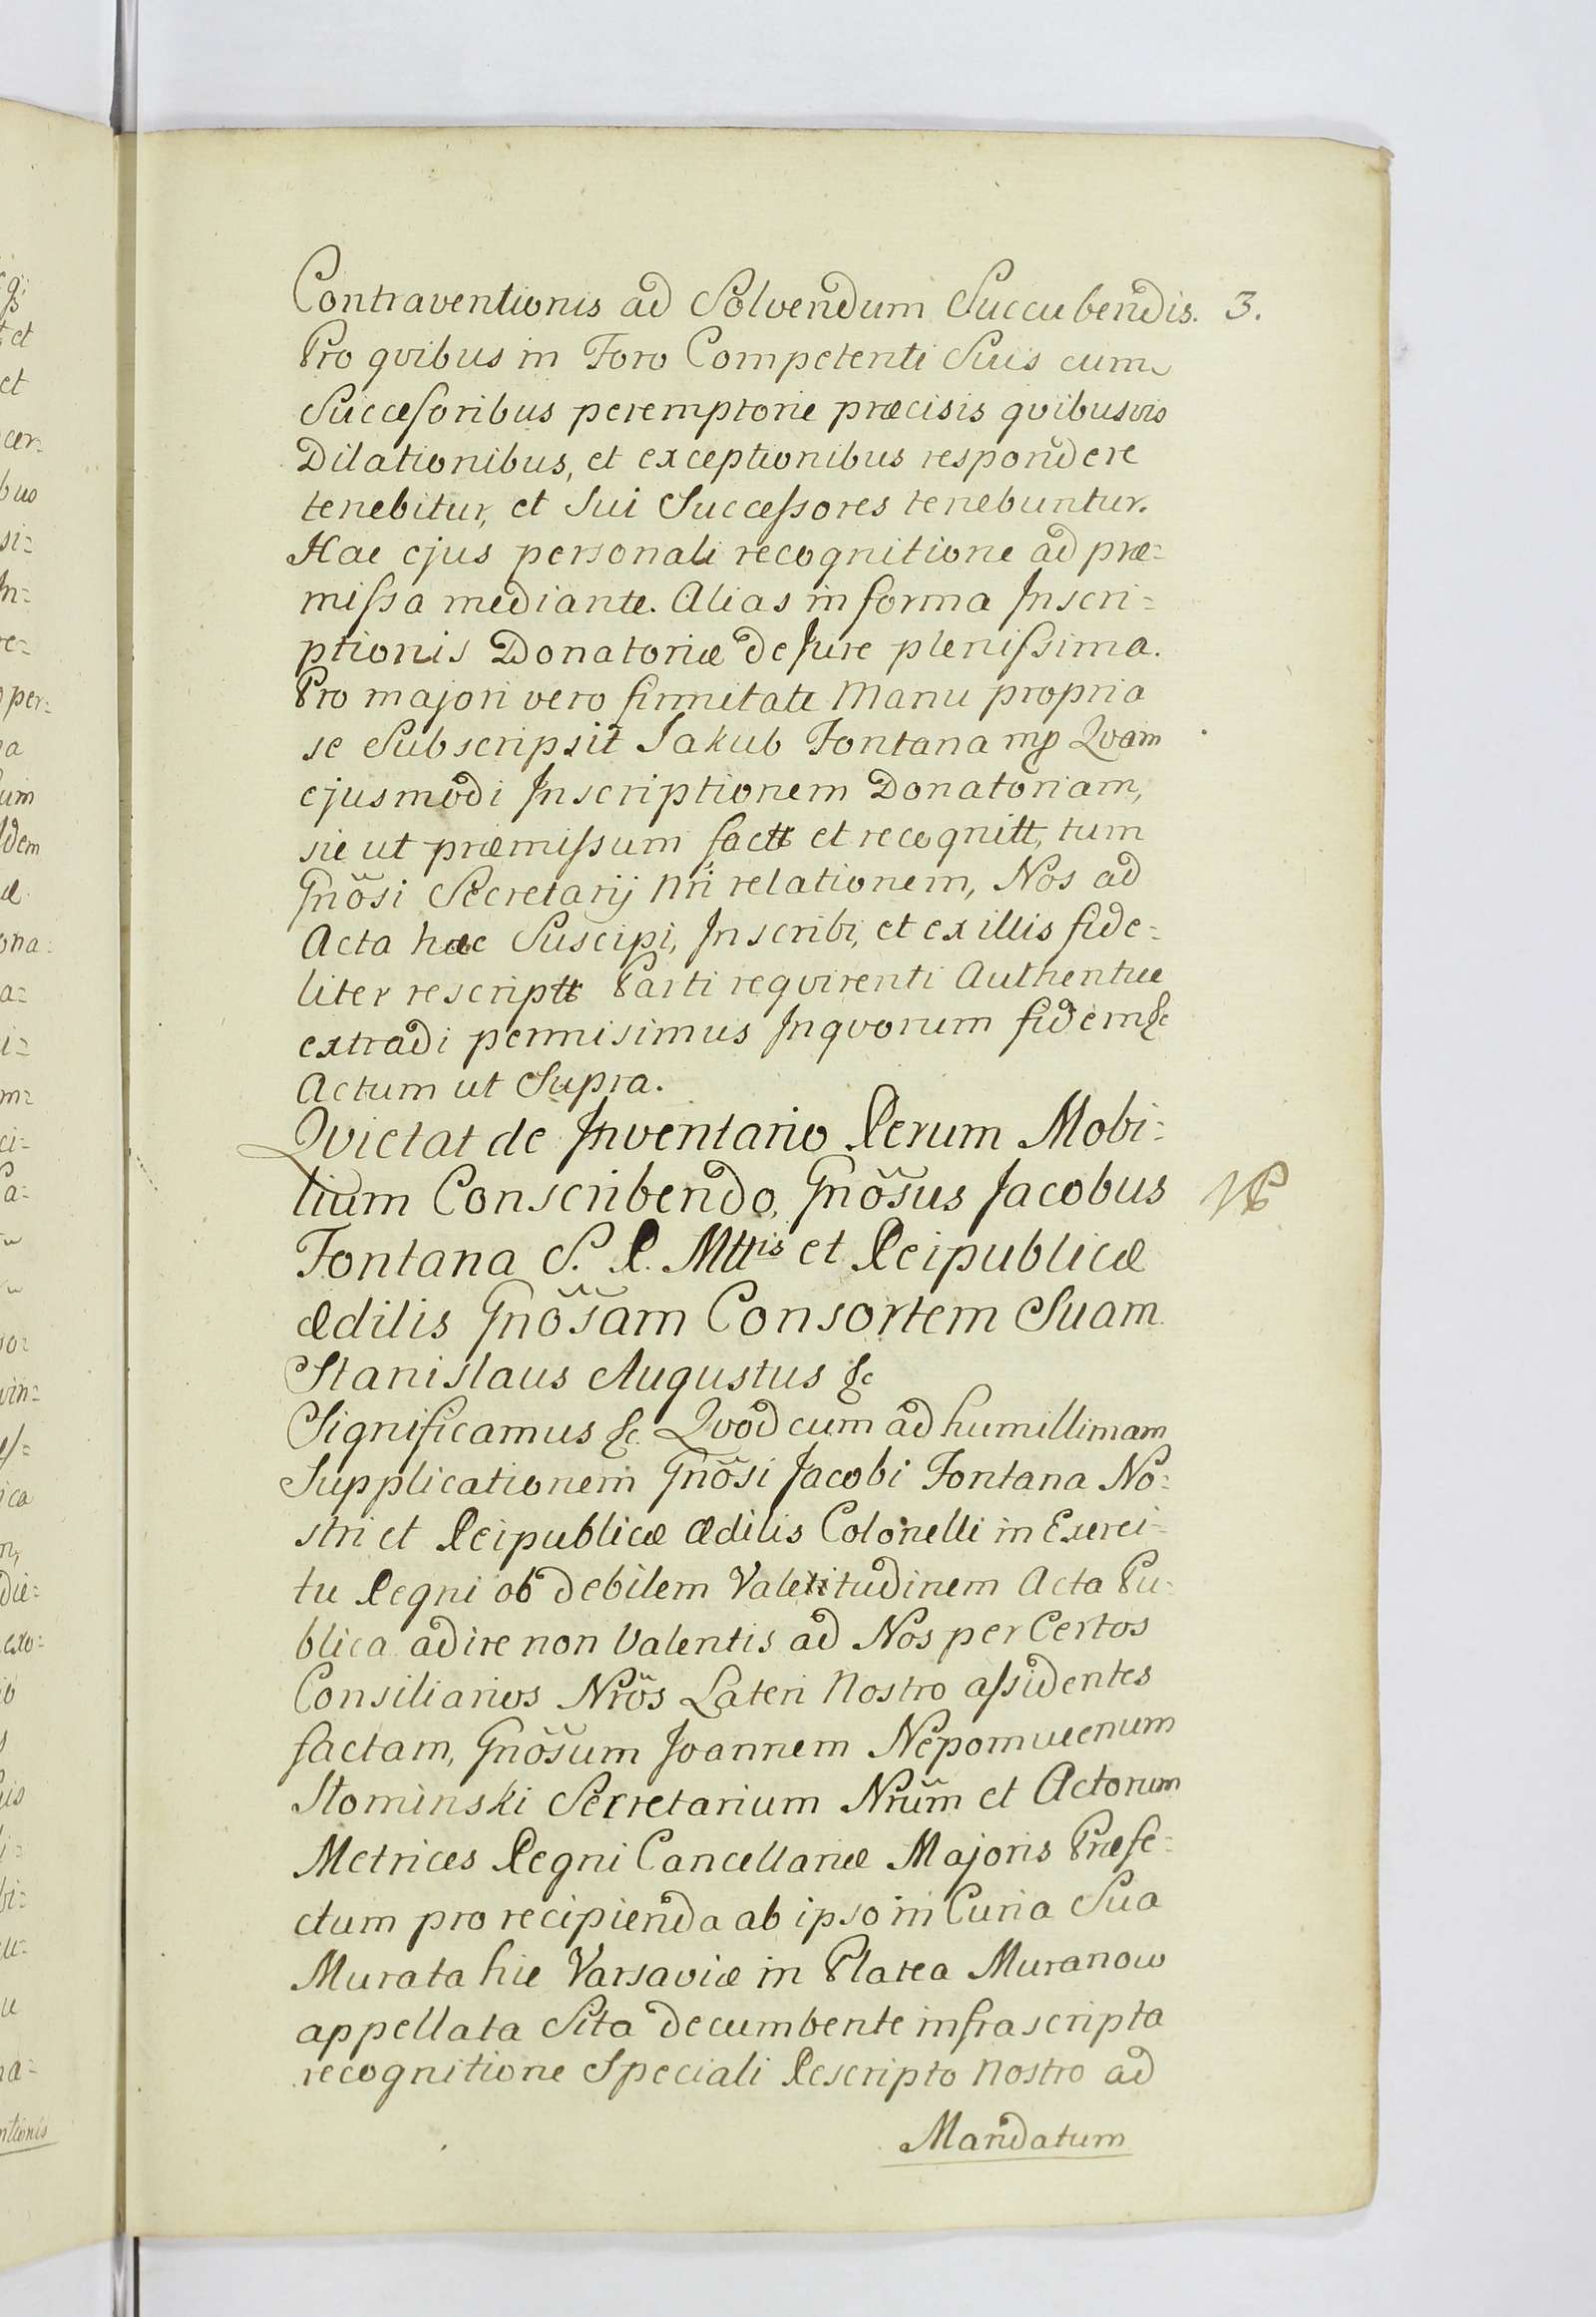 Contraventionis ad Solvendum Succubendis. 3.
Pro qvibus in Foro Competenti Suis cum
Succeſoribus peremptorie præcisis qvibusvis
Dilationibus, et exceptionibus respondere
tenebitur, et Sui Succeſsores tenebuntur.
Hac ejus personali recognitione ad præ=
miſsa mediante. Alias in forma Inscri=
ptionis Donatoriæ de Jure pleniſsima.
Pro majori vero firmitate Manu propria
se Subscripsit Jakub Fontana mp Qvam
ejusmodi Inscriptionem Donatoriam,
sic ut præmiſsum factt et recognitt, tum
Gnõsi Secretarij Nri relationem, Nos ad
Acta hæc Suscipi, Inscribi, et ex illis fide=
liter rescriptt Parti reqvirenti Authentice
extradi permisimus Inqvorum fidem &c
Actum ut Supra.
Qvietat de Inventario Rerum Mobi=
lium Conscribendo, Gnõsus Jacobus
Fontana S. R. Mttis et Reipublicæ
Ædilis Gnõsam Consortem Suam
Stanislaus Augustus &c
Significamus &c. Qvod cum ad humillimam
Supplicationem Gnõsi Jacobi Fontana No=
stri et Reipublicæ Ædilis Colonelli in Exerci=
tu Regni ob debilem Valetitudinem Acta Pu=
blica adire non Valentis ad Nos per Certos
Consiliarios Nrõs Lateri Nostro aſsidentes
factam, Gnõsum Joannem Nepomucenum
Słominski Secretarium Nrũm et Actorum
Metrices Regni Cancellariæ Majoris Præfe=
ctum pro recipienda ab ipso in Curia Sua
Murata hic Varsaviæ in Platea Muranow
appellata Sita decumbente infrascripta
recognitione Speciali Rescripto Nostro ad
Mandatum